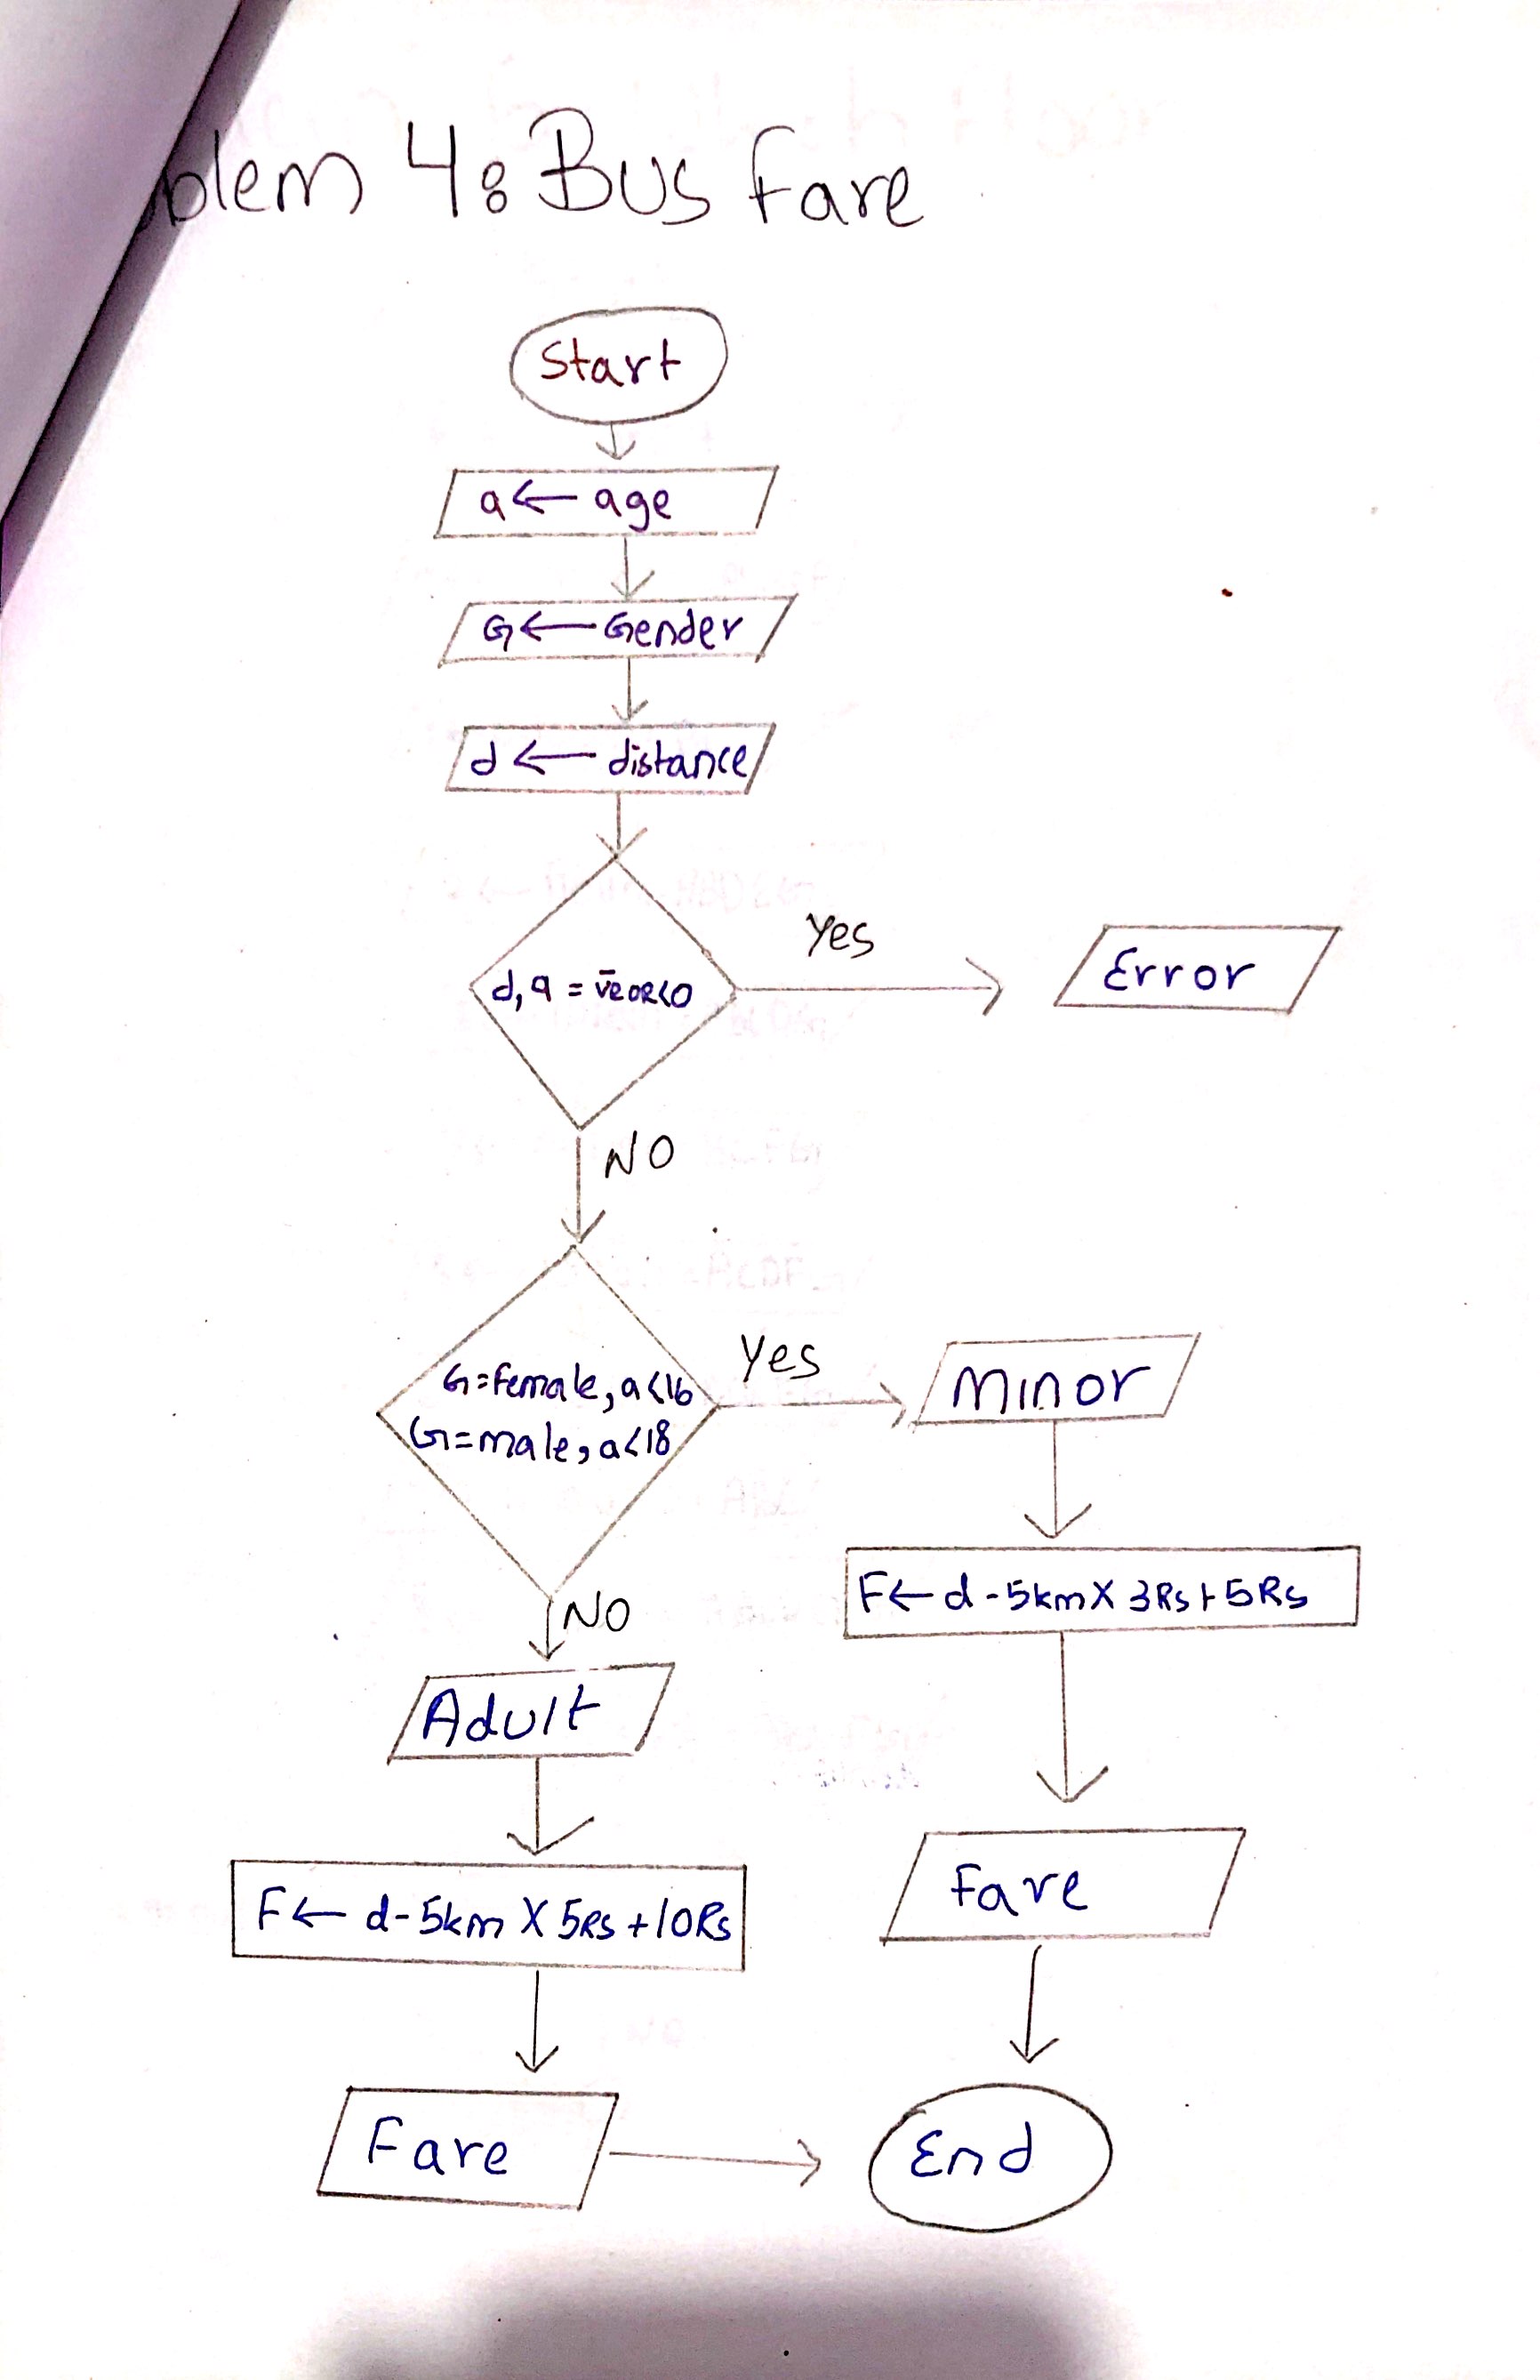 blem 4: Bus Fare
Start
a ← age
G ← Gender
d ← distance
d, a = v̄e OR <0
Yes
Error
NO
G=female, a<16
G=male, a<18
Yes
Minor
F ← d - 5km X 3Rs + 5Rs
NO
Adult
F ← d - 5km X 5Rs + 10Rs
Fare
Fare
End